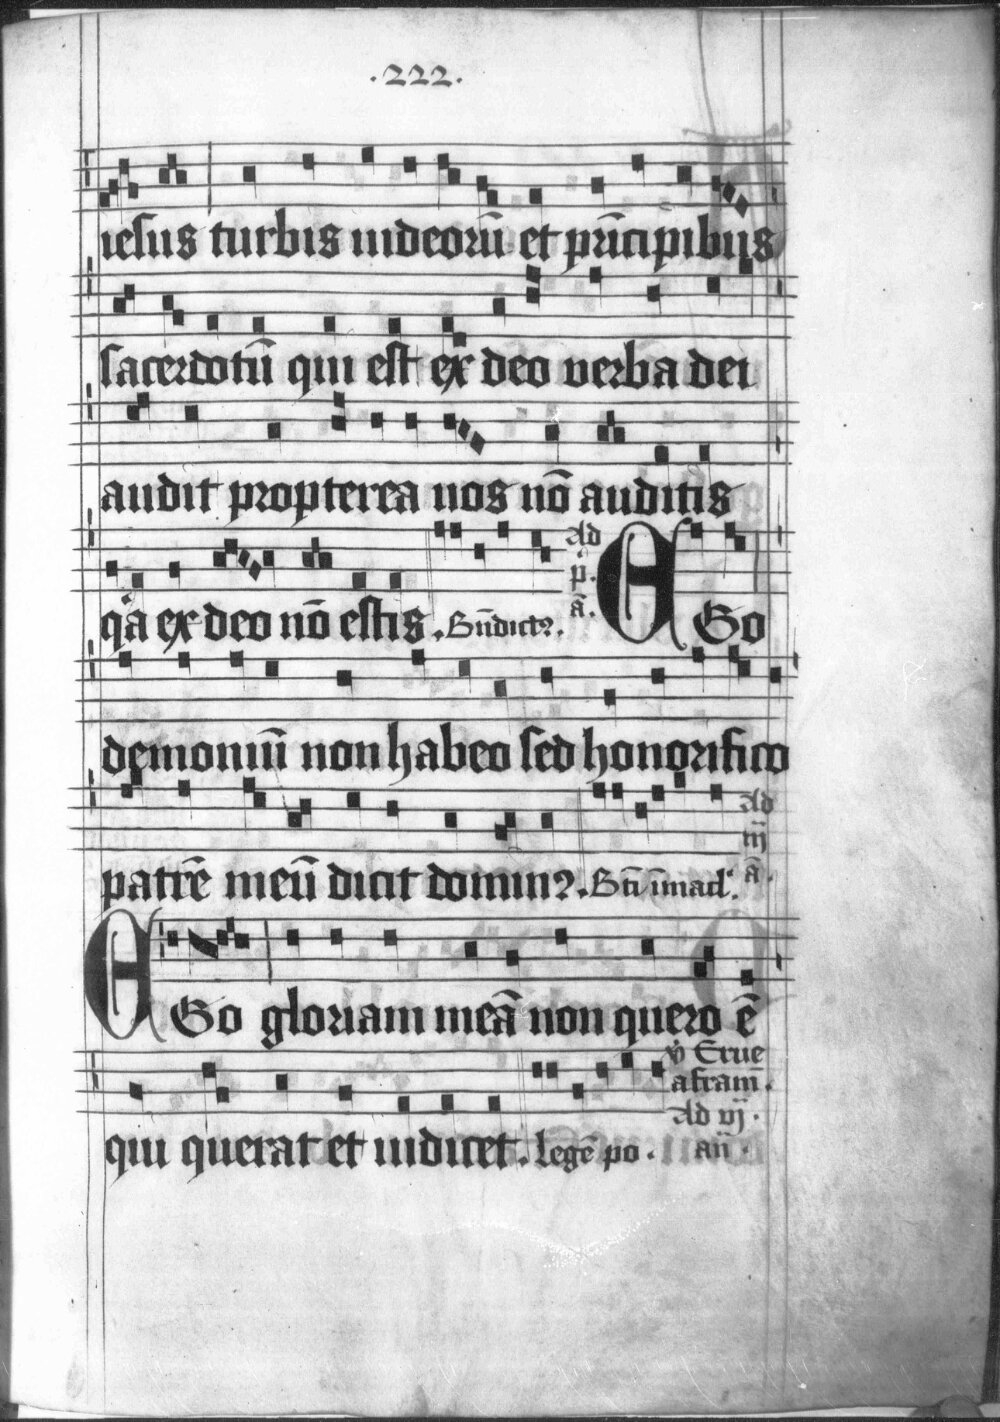 .222.
iesus turbis iudeorū et prīcipibus
sacerdotū qui est ex deo verba dei
audit propterea uos nō auditis
Ad
p̄.
ā.
qͥa ex deo nō estis. Bn̄dictꝰ. EGo
demoniū non habeo sed honorifico
Ad
iij
ā.
patrē meū dicit dominꝰ.
EGo gloriam meā non quero ē
Erue
a fram̄.
Ad vj.
an̄.
qui querat et iudicet. Legē po.